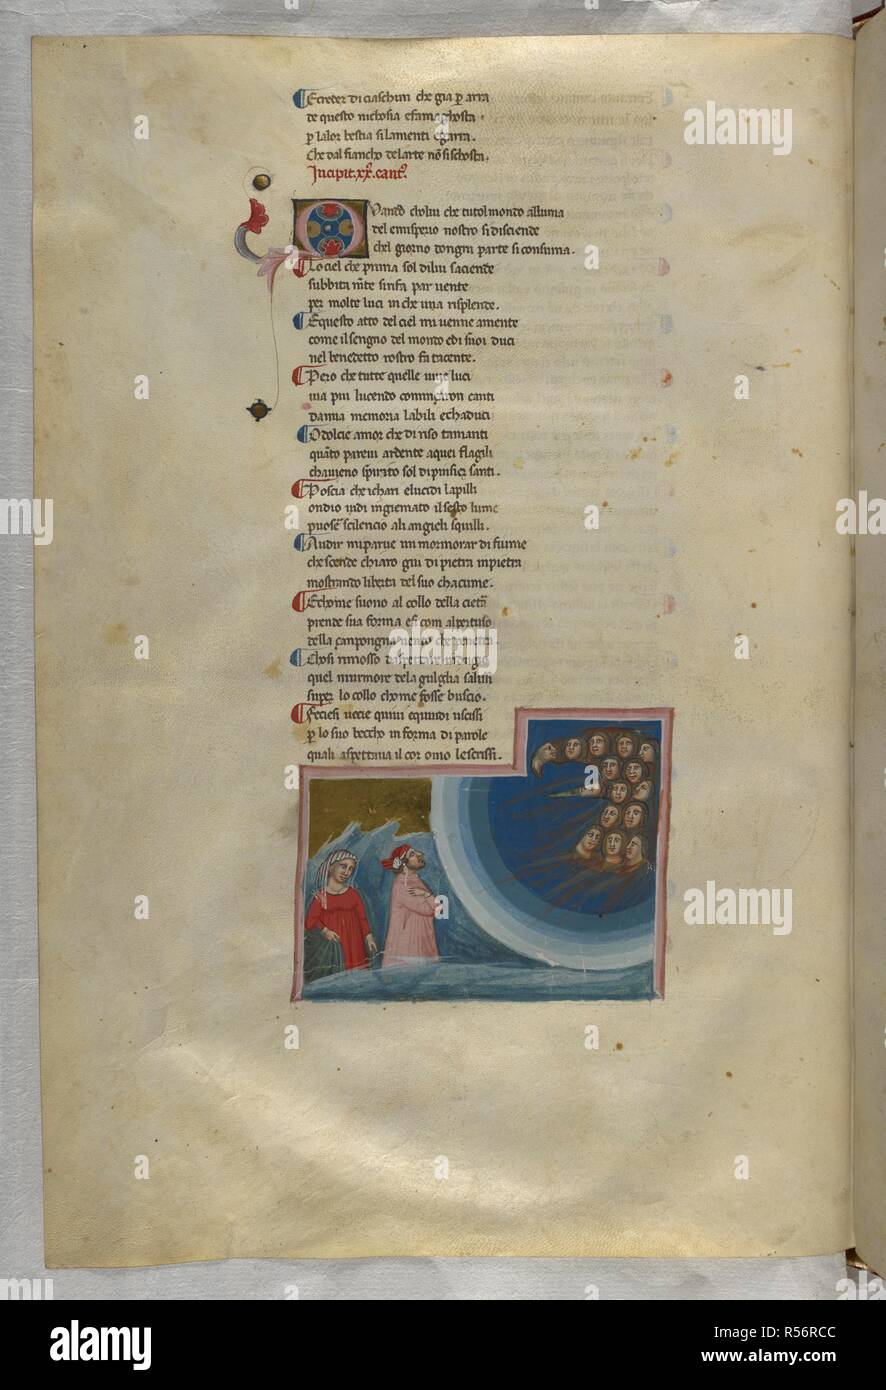 E creder di ciaschun che gia p arra
de questo nichosia efamaghosta
p lalor bestia silamenti egarra.
Che dal fiancho delarte nō sischosta.
Incipit.xx.cant'.
Vando cholui che tutol mondo alluma
del emisperio nostro si disciende
chel giorno dongni parte si consuma.
Lociel che prima sol dilui saciende
subbita mēte sirifa par vente
per molte luci in che una risplende.
E questo atto del ciel mi venne amente
come il sengno del mondo edi suoi duci
nel benedetto rostro fu tacente.
Pero che tutte quelle vive luci
via piu lucendo cominciaron canti
da mia memoria labili echaduci
O dolcie amor che di riso tamanti
quāto parevi ardente aquei flagili
chavieno spirito sol di pensier santi.
Poscia che ichari elucidi lapilli
ondio vidi ingiemato il sesto lume
puoser scilencio ali angieli squilli.
Audir mi parve un mormorar di fiume
che scende chiaro giu di pietra impietra
mostrando liberta del suo chacume.
E chome suono al collo della cietra
prende sua forma esi com alpertuso
della
Chosi rimosso
quel murmore dela guglia salissi
super lo collo chome fosse buscio.
Feciesi vocie quivi equindi uscissi
p lo suo beccho in forma di parole
quali aspettava il cor ovio lescrissi.
alamy
alamy
Image ID: R56RCC
www.alamy.com